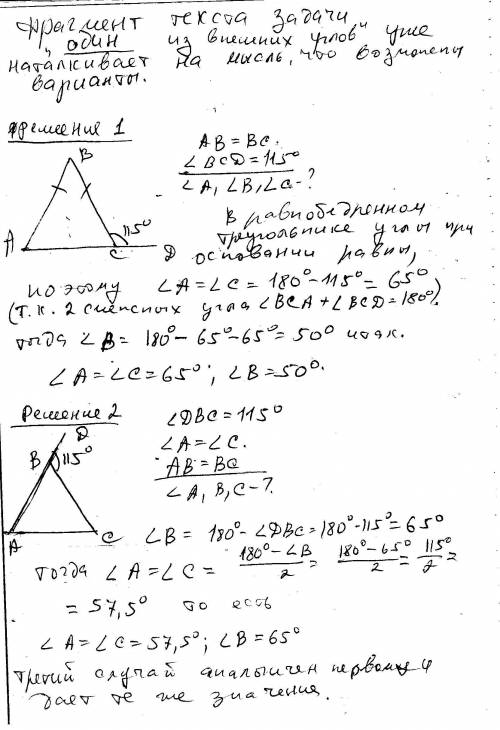 Фрагмент текста задачи
"один из внешних углов" уже
наталкивает на мысль, что возможены
варианты.
Решение 1
B
A
C
D
115°
AB = BC.
∠BCD = 115°
∠A, ∠B, ∠C - ?
В равнобедренном
треугольнике углы при
основании равны,
поэтому ∠A = ∠C = 180° - 115° = 65°
(т.к. 2 смежных угла ∠BCA + ∠BCD = 180°).
тогда ∠B = 180° - 65° - 65° = 50° итак.
∠A = ∠C = 65°; ∠B = 50°.
Решение 2
D
B
115°
A
C
∠DBC = 115°
∠A = ∠C.
AB = BC
∠A, B, C - ?
∠B = 180° - ∠DBC = 180° - 115° = 65°
тогда ∠A = ∠C = (180° - ∠B)/2 = (180° - 65°)/2 = 115°/2 =
= 57,5° то есть
∠A = ∠C = 57,5°; ∠B = 65°
третий случай аналогичен первому и
дает те же значения.